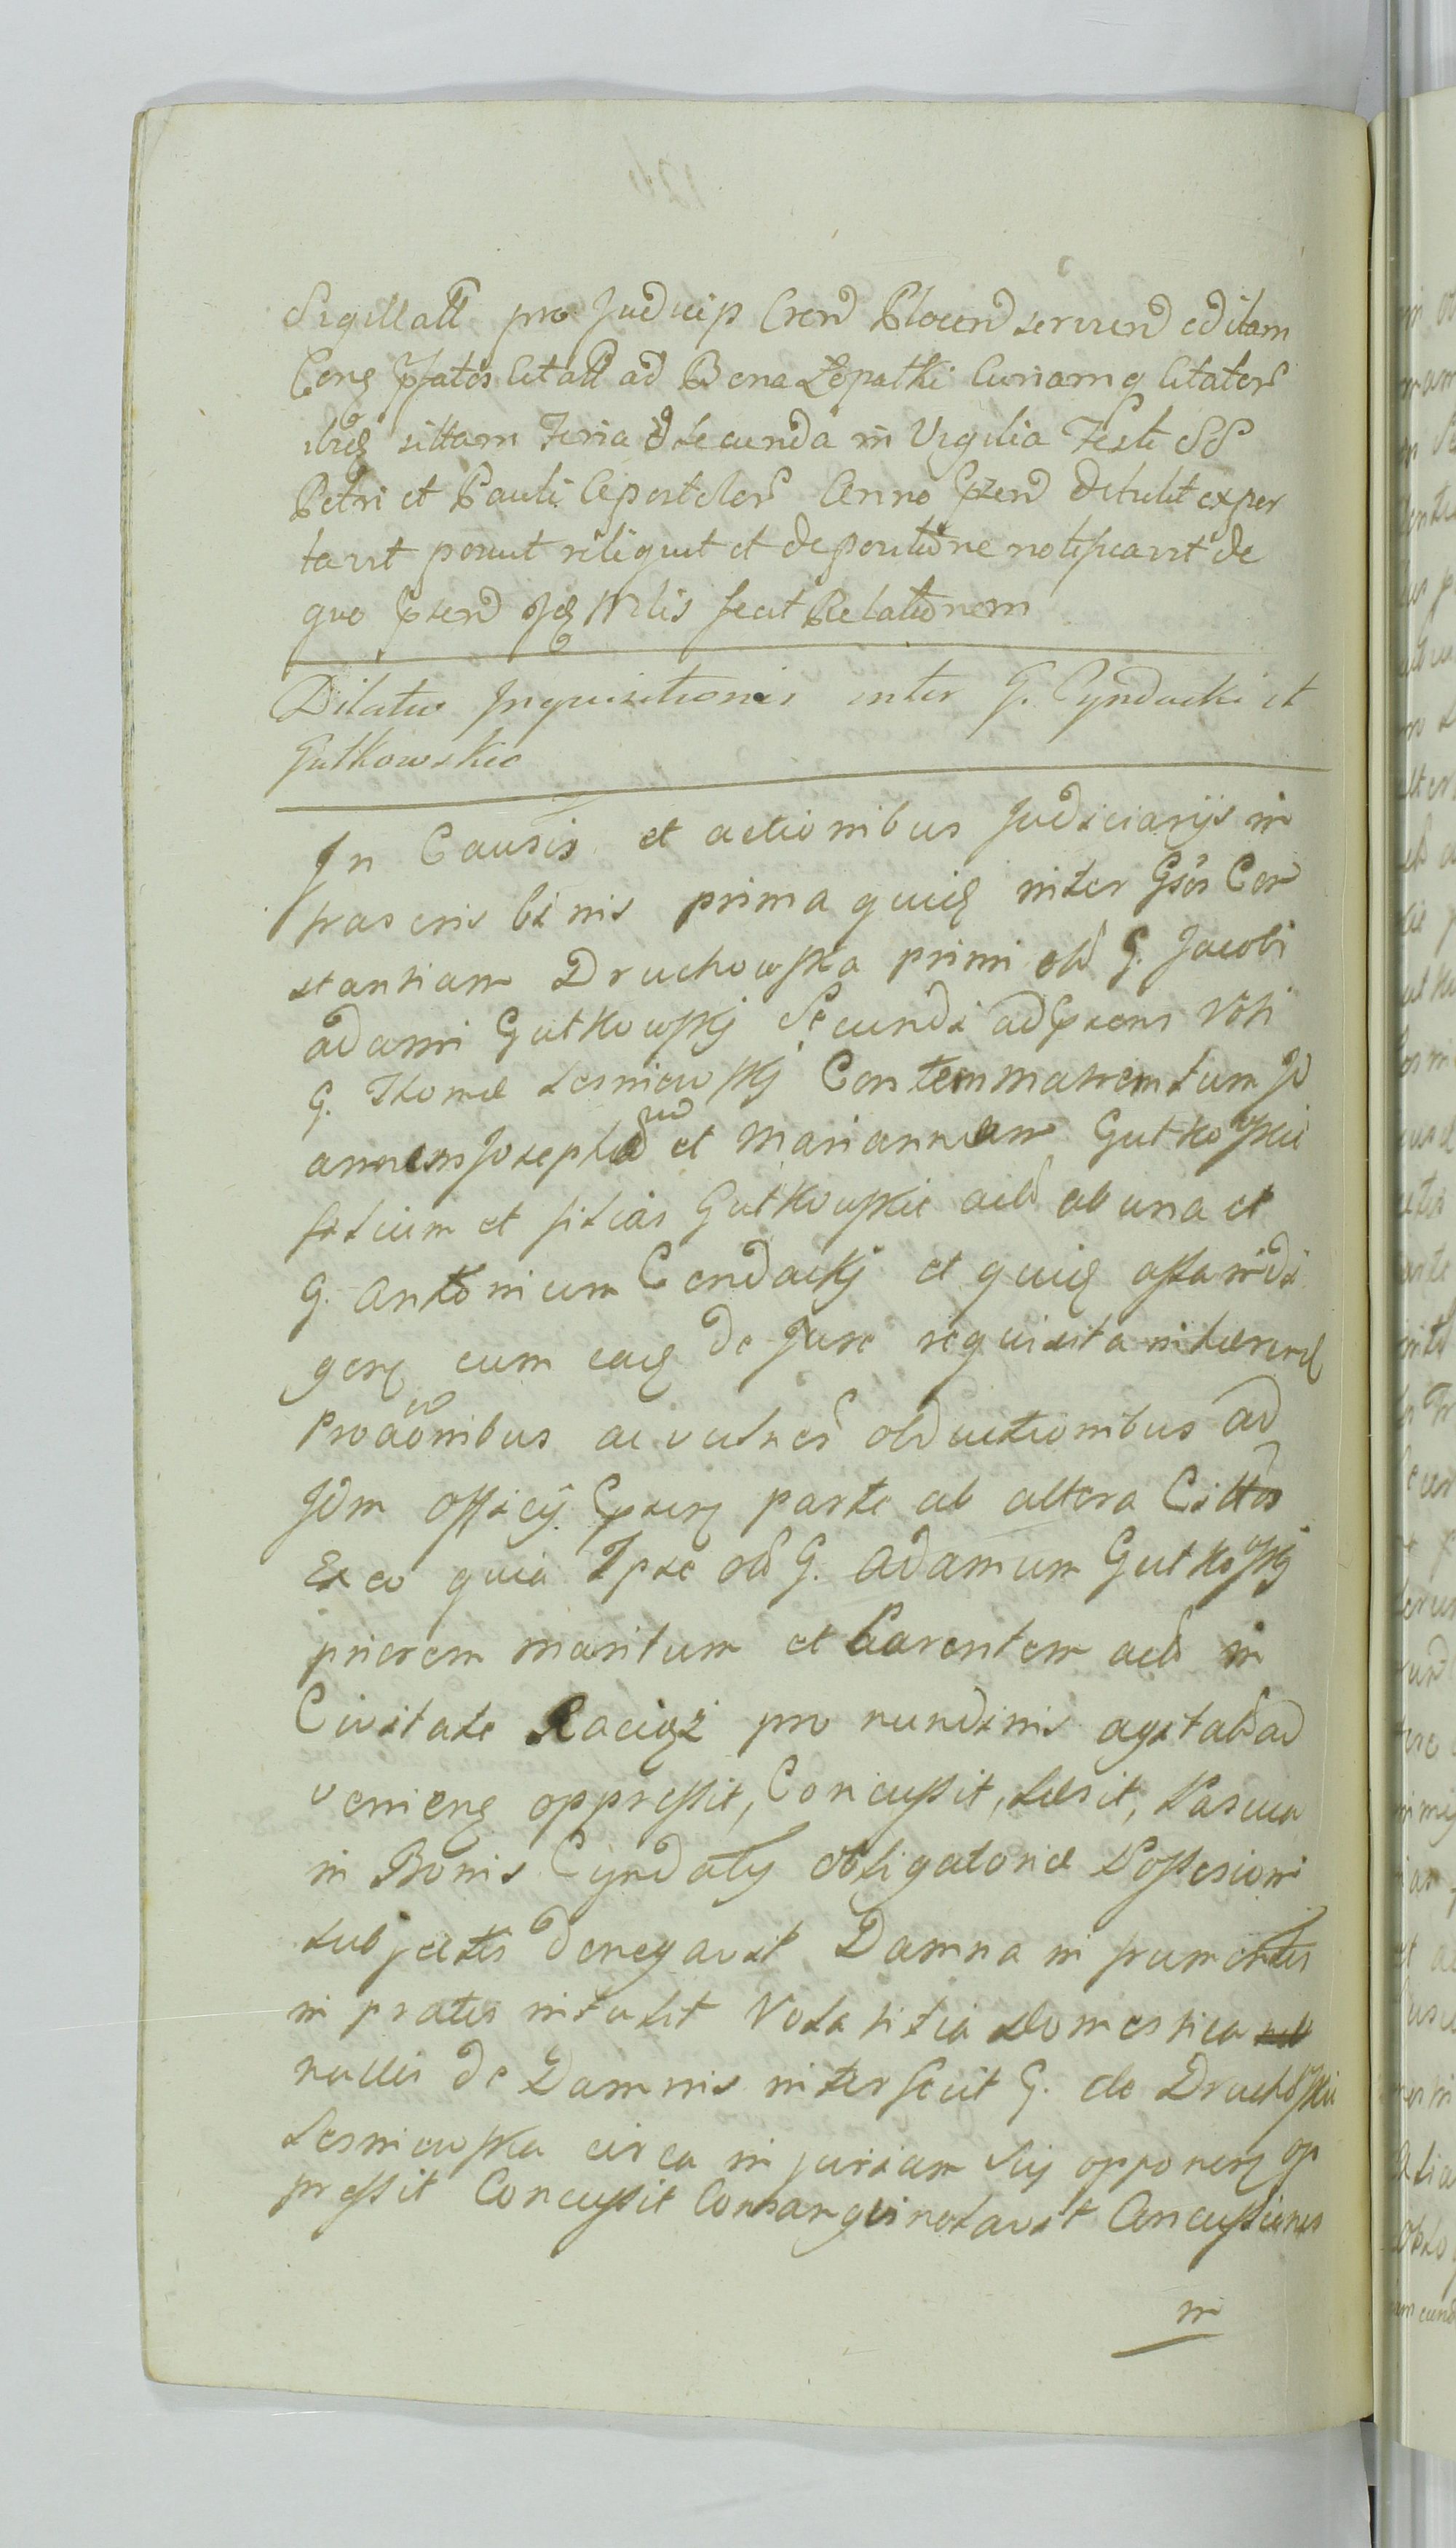 Sigillatt pro Judicip Crend Plocend serviend editam
Conq Pfatos Citatt ad Bona Łopatki Curiamq Citator
ibiq sittam Feria Secunda in Vigilia Festi SS
Petri et Pauli Apostolor Anno Pzend detulit expor
tavit ponit reliquit et de positione notificavit de
quo Psend Jdq Mlis fecit Relationem
Dilatio Inquisitionis inter G. Cyndacki et
Gutkowskie
In Causis et actionibus Judiciarijs in
fras cris binis prima quiq inter Gsos Con
stantiam Druchowska primi old G. Jacobi
adami Gutkowskj Secundi ad Psens Voti
G. Thomæ Lesniewskj Consteim matrem tum Jo
annem Josephum et Mariannam Gutkowskie
filium et filias Gutkowskie actd ab una et
G. Antonium Cendackj et quiq assa midi
genq cum eaq de Jure requisita inhærend
Proaonibus ac vulner obductionibus ad
Jdm officij Psenq parte ab altera Cittos
Ex eo quia Ipse old G. Adamum Gutkowskj
priorem maritum et Parentem actd in
Civitate Raciąż pro nundinis agitatd ad
venienq oppressit, Concussit, læsit, Pascua
in Bonis Cyndaty obligatoriæ Possesioni
subjectis denegavit Damna in frumentis
in pratis intulit Volatilia domestica
nullis de Damnis interfecit G. de Druchowskie
Lesniewska circa injuriam sui opponenq op
pressit Concussit Consanguinolavit Concussiones
in